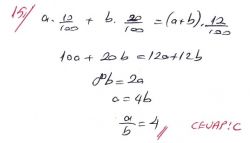 15// a. 12/100 + b. 20/100 = (a+b). 12/100
100 + 20b = 12a+12b
8b = 2a
a = 4b
a/b = 4 //
CEVAP: C